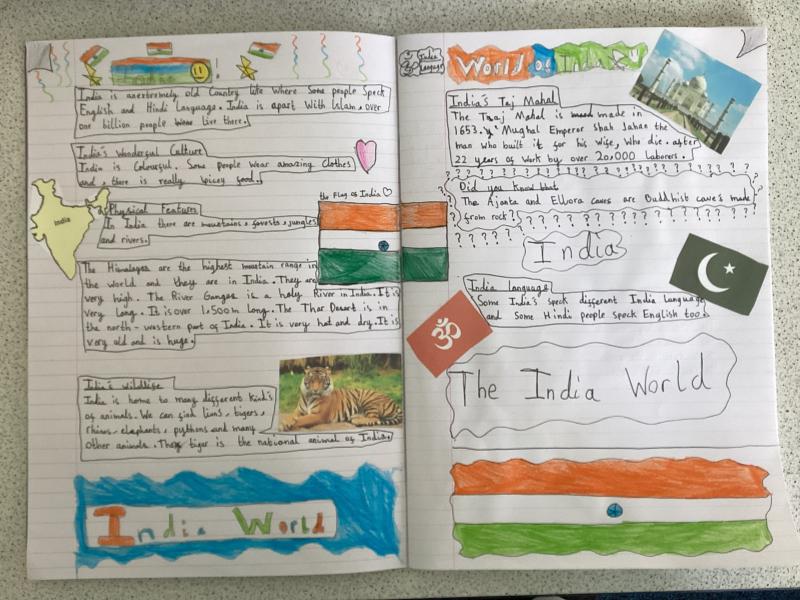 India is an extremely old Country like Where Some people Speck
English and Hindi Language. India is apart With Islam, over
one billion people Wear Live there.
India's Wonderful Culture
India is Colourful. Some people Wear amazing Clothes
and, there is really Spicey food.
India
Physical Features
In India there are mountains, forests, jungles
and rivers.
the Flag of India
The Himalayas are the highest mountain range in
the world and they are in India. They are
very high. The River Ganges is a holy River in India. It is
very Long. It is over 1,500m Long. The Thar Desert is in
the north-western part of India. It is very hot and dry. It is
very old and is huge.
India's wildlife
India is home to many different kind's
of animals. We can find lions, tigers,
rhinos, elephants, pythons and many
other animals. The tiger is the national animal of India.
India World
India
Language
World of India
India's Taj Mahal
The Taaj Mahal is made in
1653. Mughal Emperor Shah Jahan the
man who built it for his wife, Who die. after
22 years of work by over 20,000 Laborers.
Did you know that
The Ajanta and Ellora caves are Buddhist cave's made
from rock?
India
India language
Some India's speck different India Language
and Some Hindi people speck English too.
ॐ
The India World